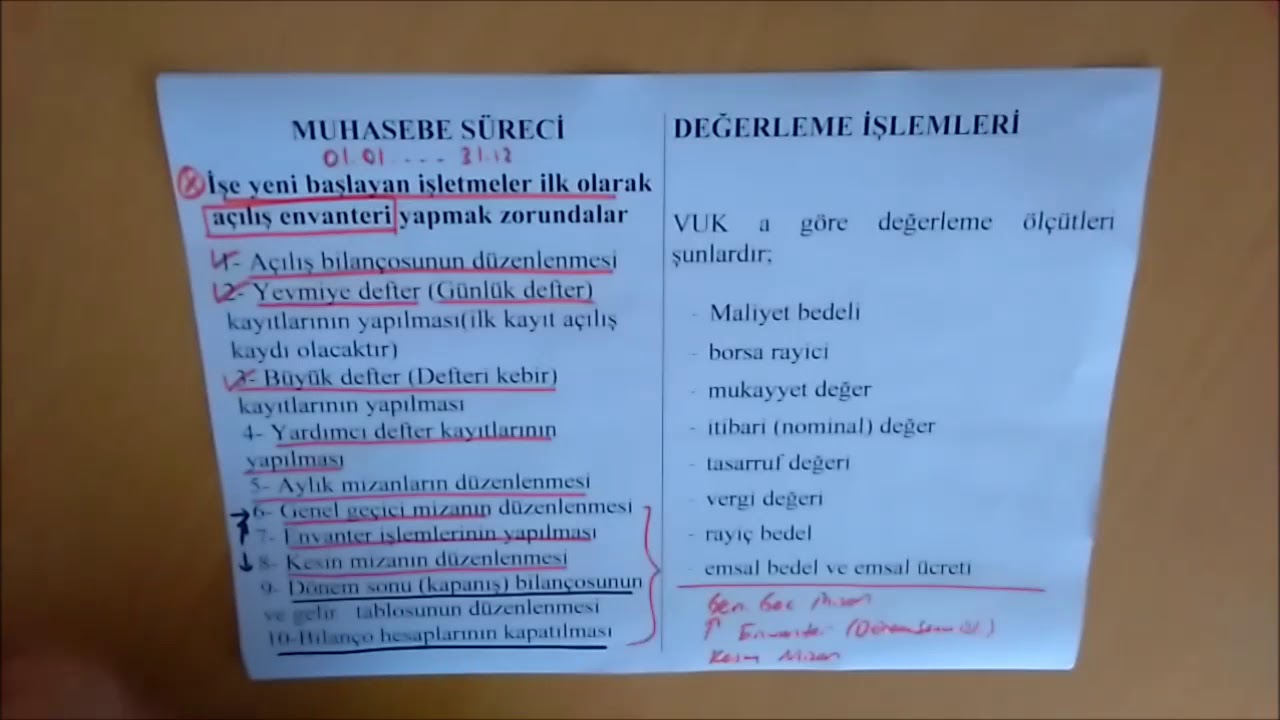 MUHASEBE SÜRECİ
01.01 .... 31.12
İşe yeni başlayan işletmeler ilk olarak
açılış envanteri yapmak zorundalar
1- Açılış bilançosunun düzenlenmesi
2- Yevmiye defter (Günlük defter)
kayıtlarının yapılması(ilk kayıt açılış
kaydı olacaktır)
3- Büyük defter (Defteri kebir)
kayıtlarının yapılması
4- Yardımcı defter kayıtlarının
yapılması
5- Aylık mizanların düzenlenmesi
6- Genel geçici mizanın düzenlenmesi
7- Envanter işlemlerinin yapılması
8- Kesin mizanın düzenlenmesi
9- Dönem sonu (kapanış) bilançosunun
ve gelir tablosunun düzenlenmesi
10-Bilanço hesaplarının kapatılması
DEĞERLEME İŞLEMLERİ
VUK a göre değerleme ölçütleri
şunlardır;
- Maliyet bedeli
- borsa rayici
- mukayyet değer
- itibari (nominal) değer
- tasarruf değeri
- vergi değeri
- rayiç bedel
- emsal bedel ve emsal ücreti
Gen Gec Mizan
Envanter
Kesin Mizan